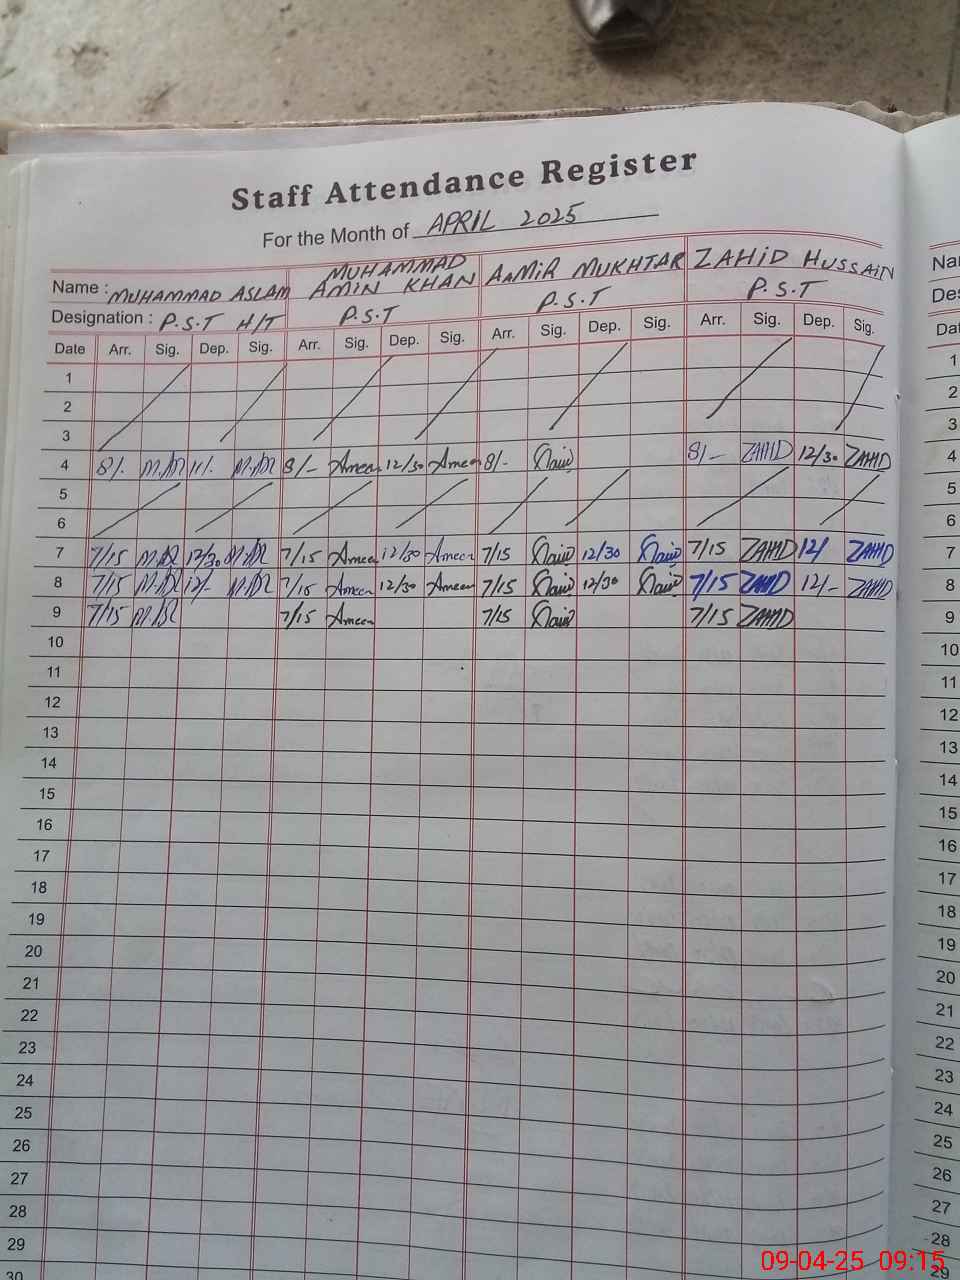 Staff Attendance Register
For the Month of APRIL 2025
Name : MUHAMMAD ASLAM MUHAMMAD AMIN KHAN AAMIR MUKHTAR ZAHID HUSSAIN
Designation : P.S.T H/T P.S.T P.S.T P.S.T
Date Arr. Sig. Dep. Sig. Arr. Sig. Dep. Sig. Arr. Sig. Dep. Sig. Arr. Sig. Dep. Sig.
1
2
3
4 8/- 8/- Ameen 12/30 Ameen 8/- 8/- ZAHID 12/30 ZAHID
5
6
7 7/15 12/30 7/15 Ameen 12/30 Ameen 7/15 12/30 7/15 ZAHID 12/ ZAHID
8 7/15 12/- 7/15 Ameen 12/30 Ameen 7/15 12/30 7/15 ZAHID 12/- ZAHID
9 7/15 7/15 Ameen 7/15 7/15 ZAHID
10
11
12
13
14
15
16
17
18
19
20
21
22
23
24
25
26
27
28
29
30
Na
De
Dat
1
2
3
4
5
6
7
8
9
10
11
12
13
14
15
16
17
18
19
20
21
22
23
24
25
26
27
28
29
09-04-25 09:15